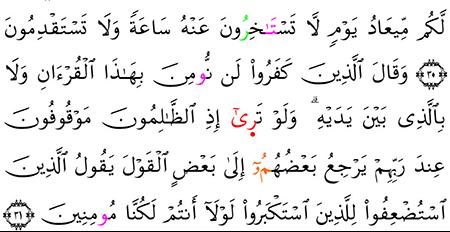 لَّكُم مِّيعَادُ يَوْمٍ لَّا تَسْتَـٰخِرُونَ عَنْهُ سَاعَةً وَلَا تَسْتَقْدِمُونَ
٣٠ وَقَالَ ٱلَّذِينَ كَفَرُوا۟ لَن نُّومِنَ بِهَـٰذَا ٱلْقُرْءَانِ وَلَا
بِٱلَّذِى بَيْنَ يَدَيْهِ ۗ وَلَوْ تَرِىٰٓ إِذِ ٱلظَّـٰلِمُونَ مَوْقُوفُونَ
عِندَ رَبِّهِمْ يَرْجِعُ بَعْضُهُمُۥٓ إِلَىٰ بَعْضٍ ٱلْقَوْلَ يَقُولُ ٱلَّذِينَ
ٱسْتُضْعِفُوا۟ لِلَّذِينَ ٱسْتَكْبَرُوا۟ لَوْلَآ أَنتُمْ لَكُنَّا مُومِنِينَ ٣١